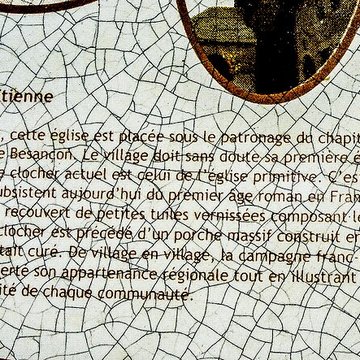 tienne
, cette église est placée sous le patronage du chapit
e Besançon. Le village doit sans doute sa première
clocher actuel est celui de l'église primitive. C'es
ubsistent aujourd'hui du premier âge roman en Fran
recouvert de petites tuiles vernissées composant
clocher est précédé d'un porche massif construit e
tait curé. De village en village, la campagne franc
erte son appartenance régionale tout en illustrant
ité de chaque communauté.